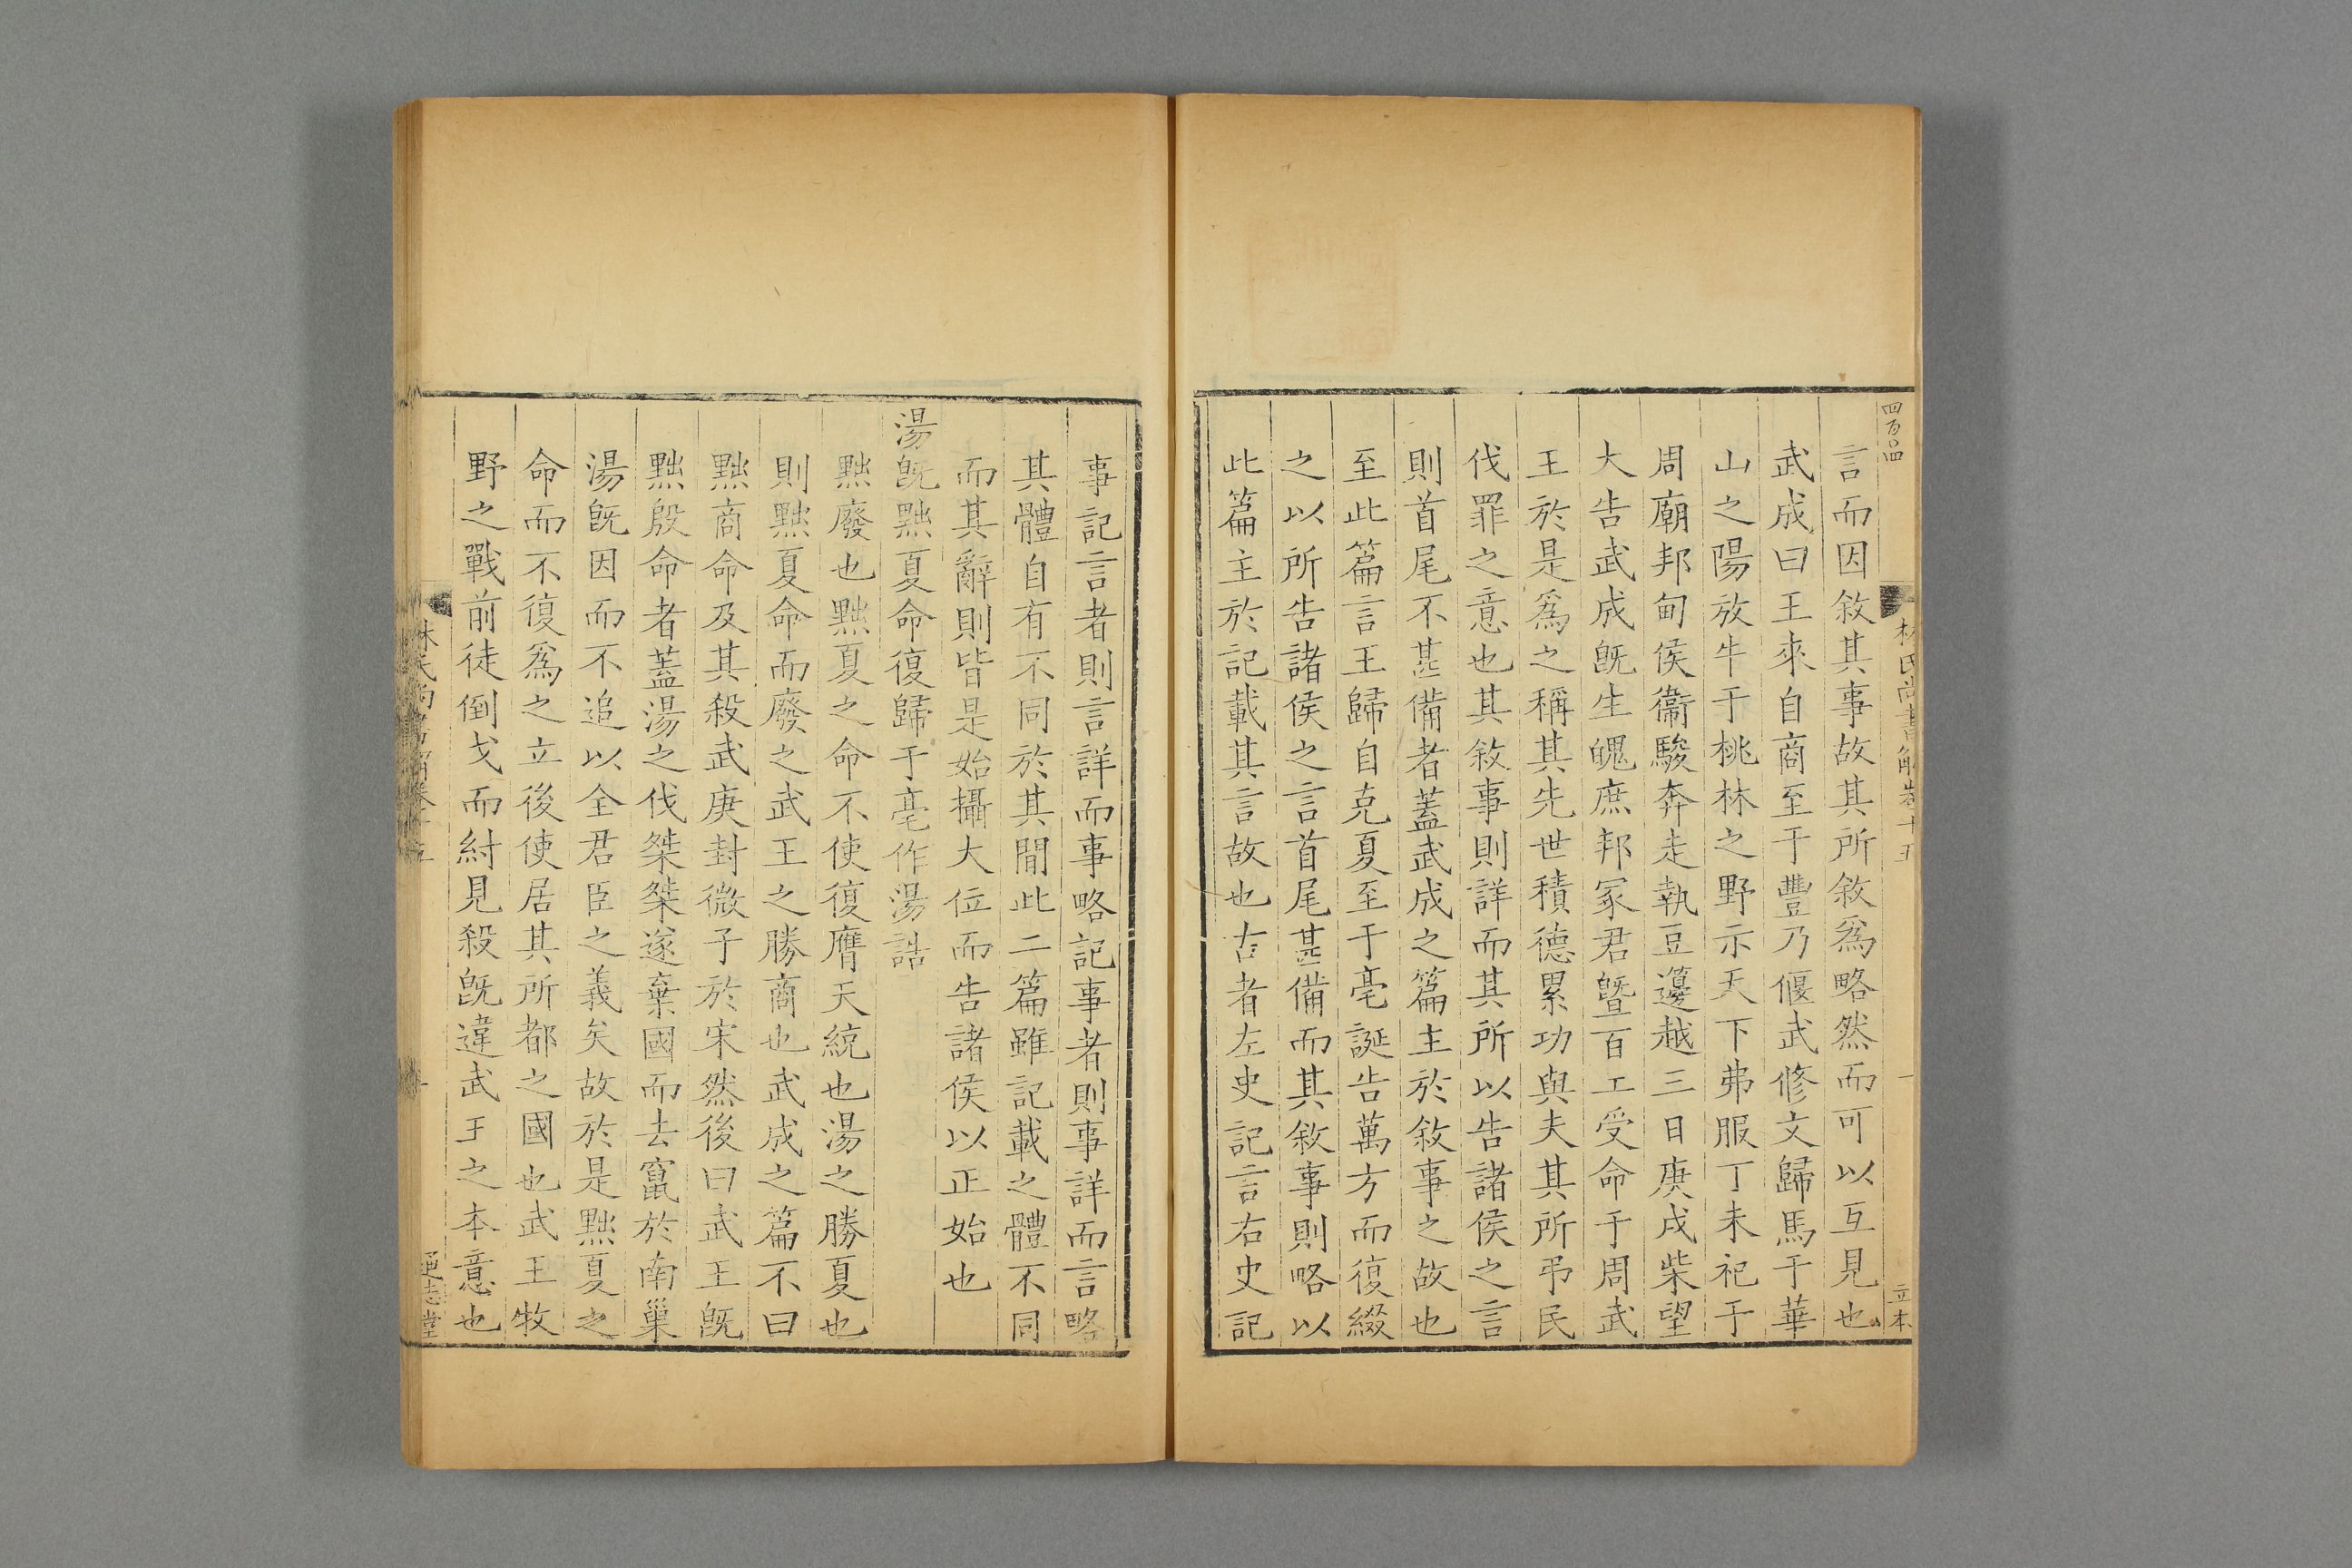 四百四
林氏尚書解卷十五
一
立本
言而因敘其事故其所敘爲略然而可以互見也
武成曰王來自商至于豐乃偃武修文歸馬于華
山之陽放牛于桃林之野示天下弗服丁未祀于
周廟邦甸侯衞駿奔走執豆籩越三日庚戌柴望
大告武成旣生魄庶邦冢君曁百工受命于周武
王於是爲之稱其先世積德累功與夫其所弔民
伐罪之意也其敘事則詳而其所以告諸侯之言
則首尾不甚備者蓋武成之篇主於敘事之故也
至此篇言王歸自克夏至于亳誕告萬方而復綴
之以所告諸侯之言首尾甚備而其敘事則略以
此篇主於記載其言故也古者左史記言右史記
事記言者則言詳而事略記事者則事詳而言略
其體自有不同於其閒此二篇雖記載之體不同
而其辭則皆是始攝大位而告諸侯以正始也
湯旣黜夏命復歸于亳作湯誥
黜廢也黜夏之命不使復膺天統也湯之勝夏也
則黜夏命而廢之武王之勝商也武成之篇不曰
黜商命及其殺武庚封微子於宋然後曰武王旣
黜殷命者蓋湯之伐桀桀遂棄國而去竄於南巢
湯旣因而不追以全君臣之義矣故於是黜夏之
命而不復爲之立後使居其所都之國也武王牧
野之戰前徒倒戈而紂見殺旣違武王之本意也
通志堂